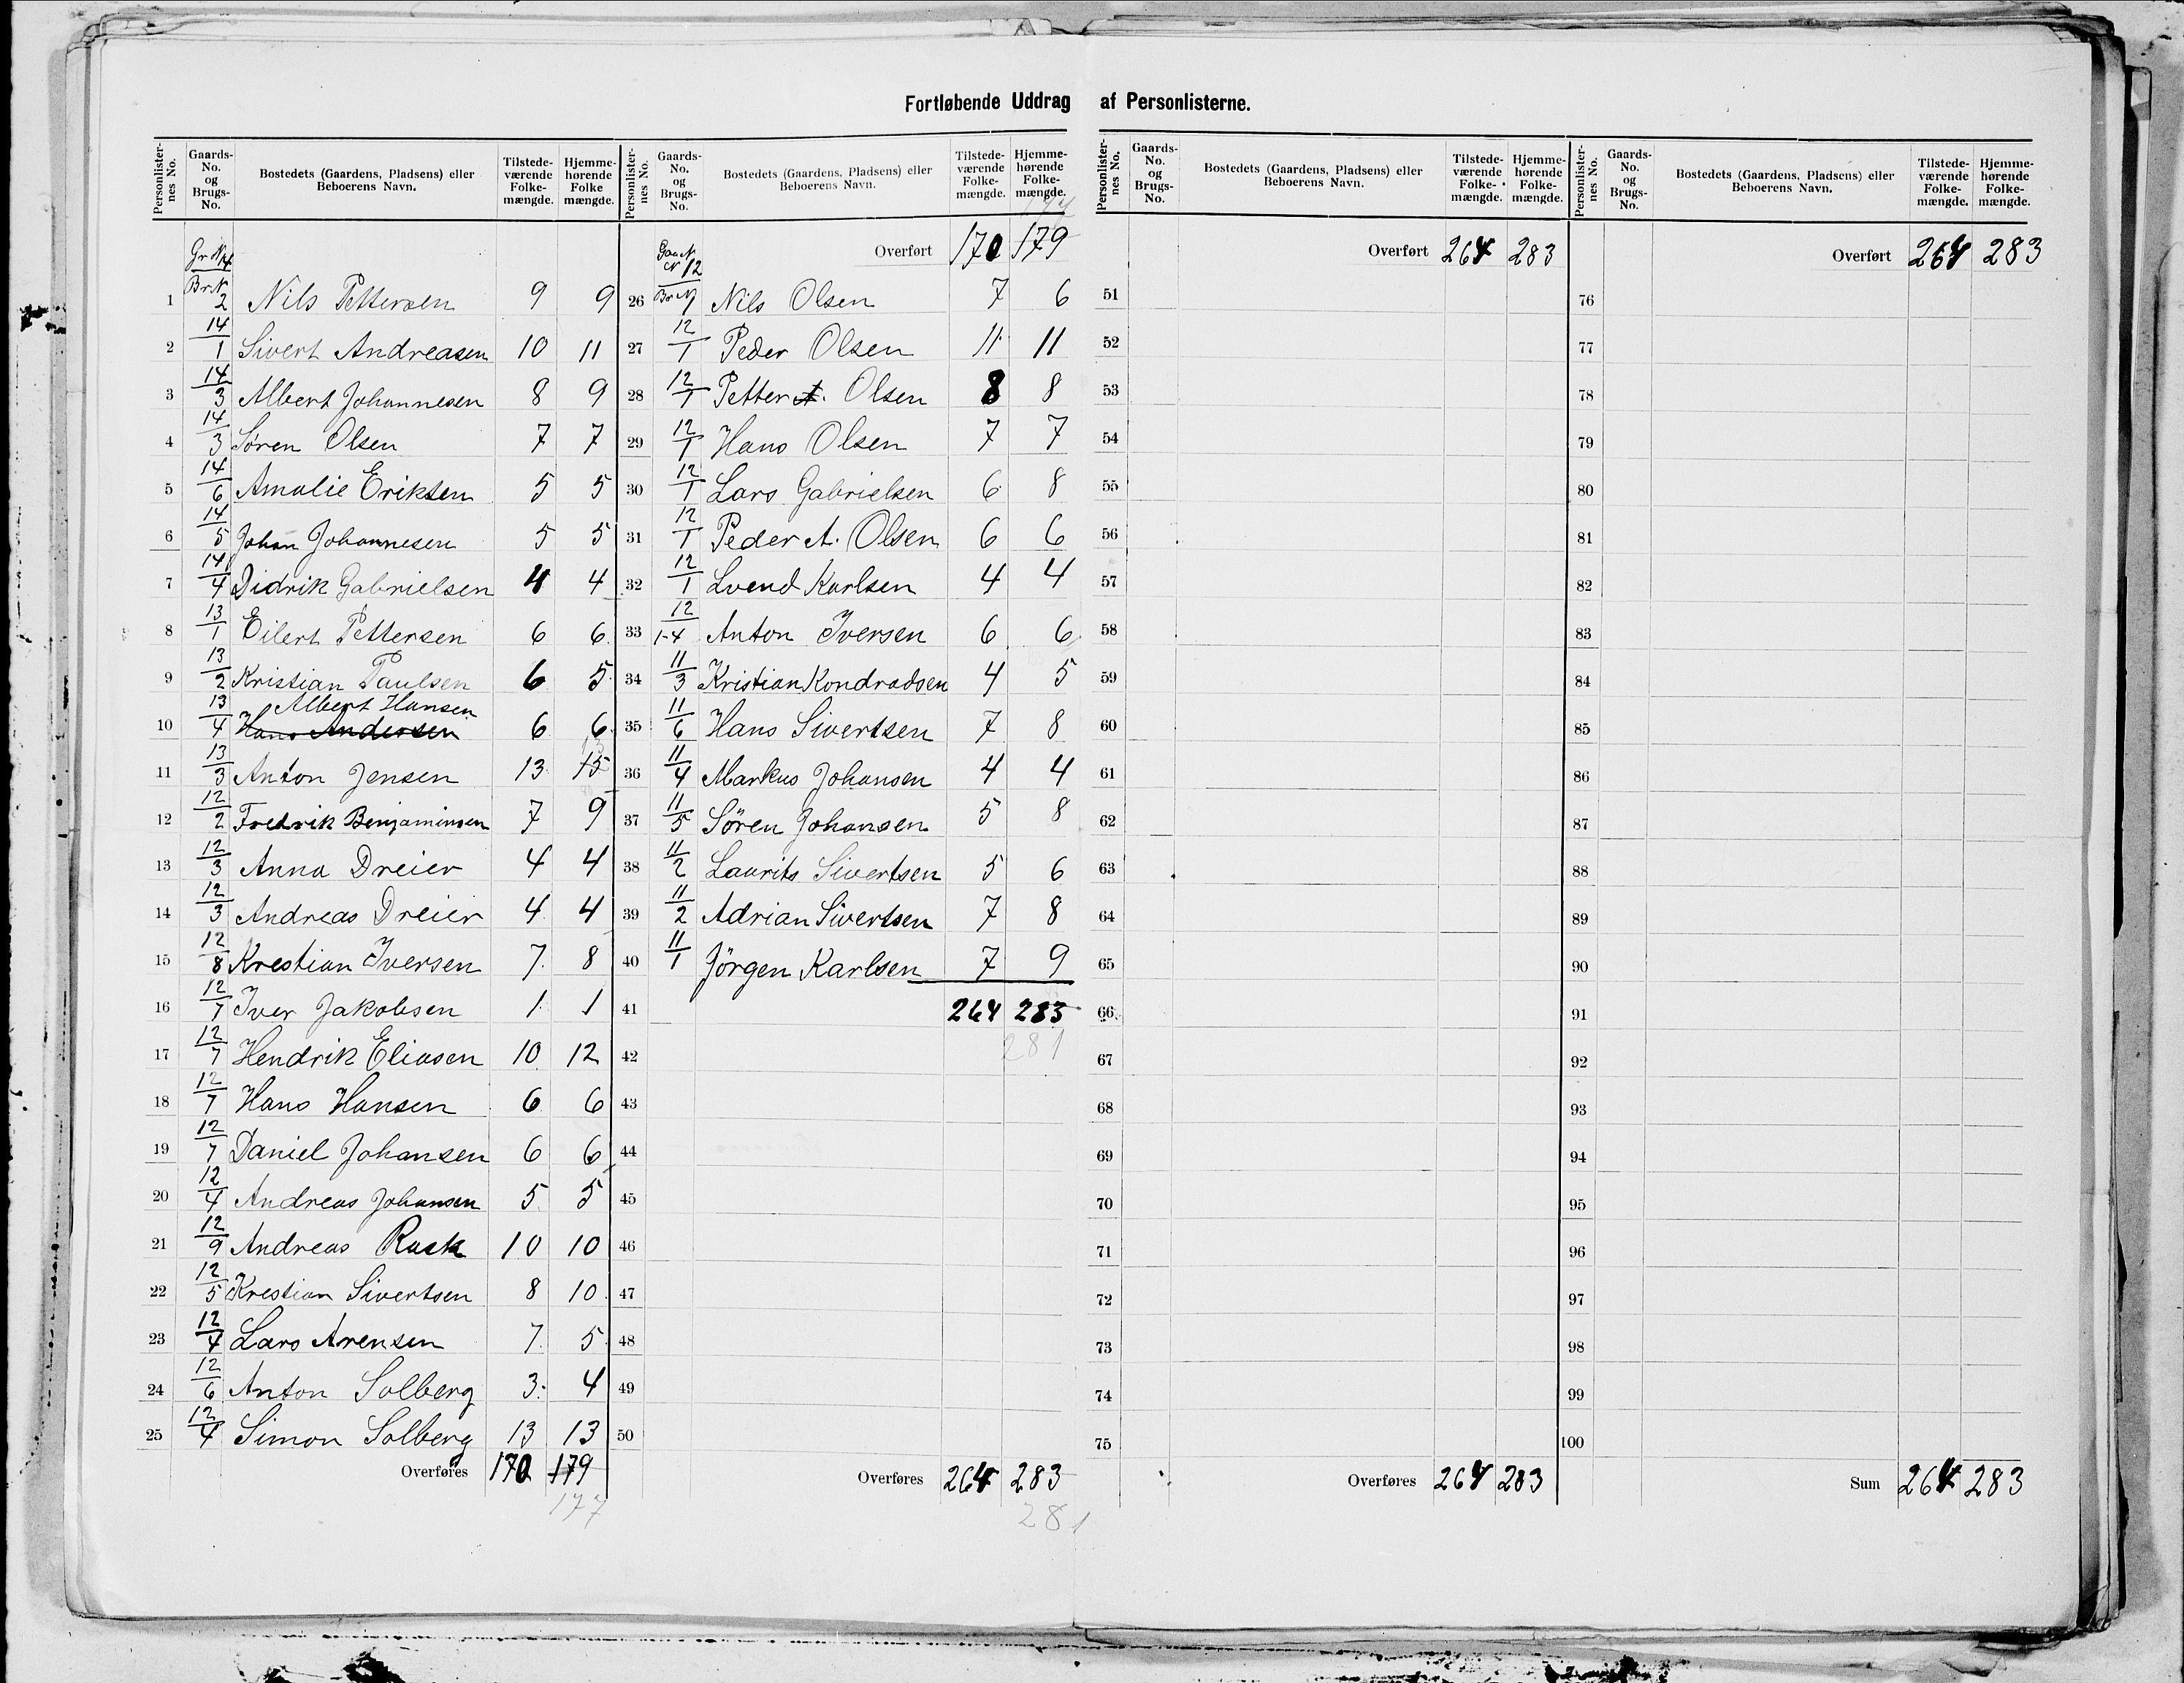 Fortløbende Uddrag af Personlisterne.
Personlisternes No. Gaards-No. og Brugs-No. Bostedets (Gaardens, Pladsens) eller Beboerens Navn. Tilstedeværende Folkemængde. Hjemmehørende Folkemængde.
1 Gr N 14 Br N 2 Nils Pettersen 9 9
2 14/1 Sivert Andreasen 10 11
3 14/3 Albert Johannesen 8 9
4 14/3 Søren Olsen 7 7
5 14/6 Amalie Eriksen 5 5
6 14/5 Johan Johannesen 5 5
7 14/4 Didrik Gabrielsen 4 4
8 13/1 Eilert Pettersen 6 6
9 13/2 Kristian Paulsen 6 5
Albert Hansen
10 13/4 Hans Andersen 6 6
11 13/3 Anton Jensen 13 15 13
12 12/2 Fredrik Benjaminsen 7 9
13 12/3 Anna Dreier 4 4
14 12/3 Andreas Dreier 4 4
15 12/8 Krestian Iversen 7 8
16 12/7 Iver Jakobsen 1 1
17 12/7 Hendrik Eliasen 10 12
18 12/7 Hans Hansen 6 6
19 12/7 Daniel Johansen 6 6
20 12/4 Andreas Johansen 5 5
21 12/9 Andreas Rask 10 10
22 12/5 Krestian Sivertsen 8 10
23 12/4 Lars Arensen 7 5
24 12/6 Anton Solberg 3 4
25 12/4 Simon Solberg 13 13
Overføres 170 179
177
Personlisternes No. Gaards-No. og Brugs-No. Bostedets (Gaardens, Pladsens) eller Beboerens Navn. Tilstedeværende Folkemængde. Hjemmehørende Folkemængde.
177
Overført 170 179
26 12 Br N 1 Nils Olsen 7 6
27 12/1 Peder Olsen 11 11
28 12/1 Petter A. Olsen 8 8
29 12/1 Hans Olsen 7 7
30 12/1 Lars Gabrielsen 6 8
31 12/1 Peder A. Olsen 6 6
32 12/1 Svend Karlsen 4 4
33 12/1-4 Anton Iversen 6 6
34 11/3 Kristian Kondradsen 4 5
35 11/6 Hans Sivertsen 7 8
36 11/4 Markus Johansen 4 4
37 11/5 Søren Johansen 5 8
38 11/2 Laurits Sivertsen 5 6
39 11/2 Adrian Sivertsen 7 8
40 11/1 Jörgen Karlsen 7 9
41 264 283
42 281
43
44
45
46
47
48
49
50
Overføres 264 283
281
Personlisternes No. Gaards-No. og Brugs-No. Bostedets (Gaardens, Pladsens) eller Beboerens Navn. Tilstedeværende Folkemængde. Hjemmehørende Folkemængde.
Overført 264 283
51
52
53
54
55
56
57
58
59
60
61
62
63
64
65
66
67
68
69
70
71
72
73
74
75
Overføres 264 283
Personlisternes No. Gaards-No. og Brugs-No. Bostedets (Gaardens, Pladsens) eller Beboerens Navn. Tilstedeværende Folkemængde. Hjemmehørende Folkemængde.
Overført 264 283
76
77
78
79
80
81
82
83
84
85
86
87
88
89
90
91
92
93
94
95
96
97
98
99
100
Sum 264 283